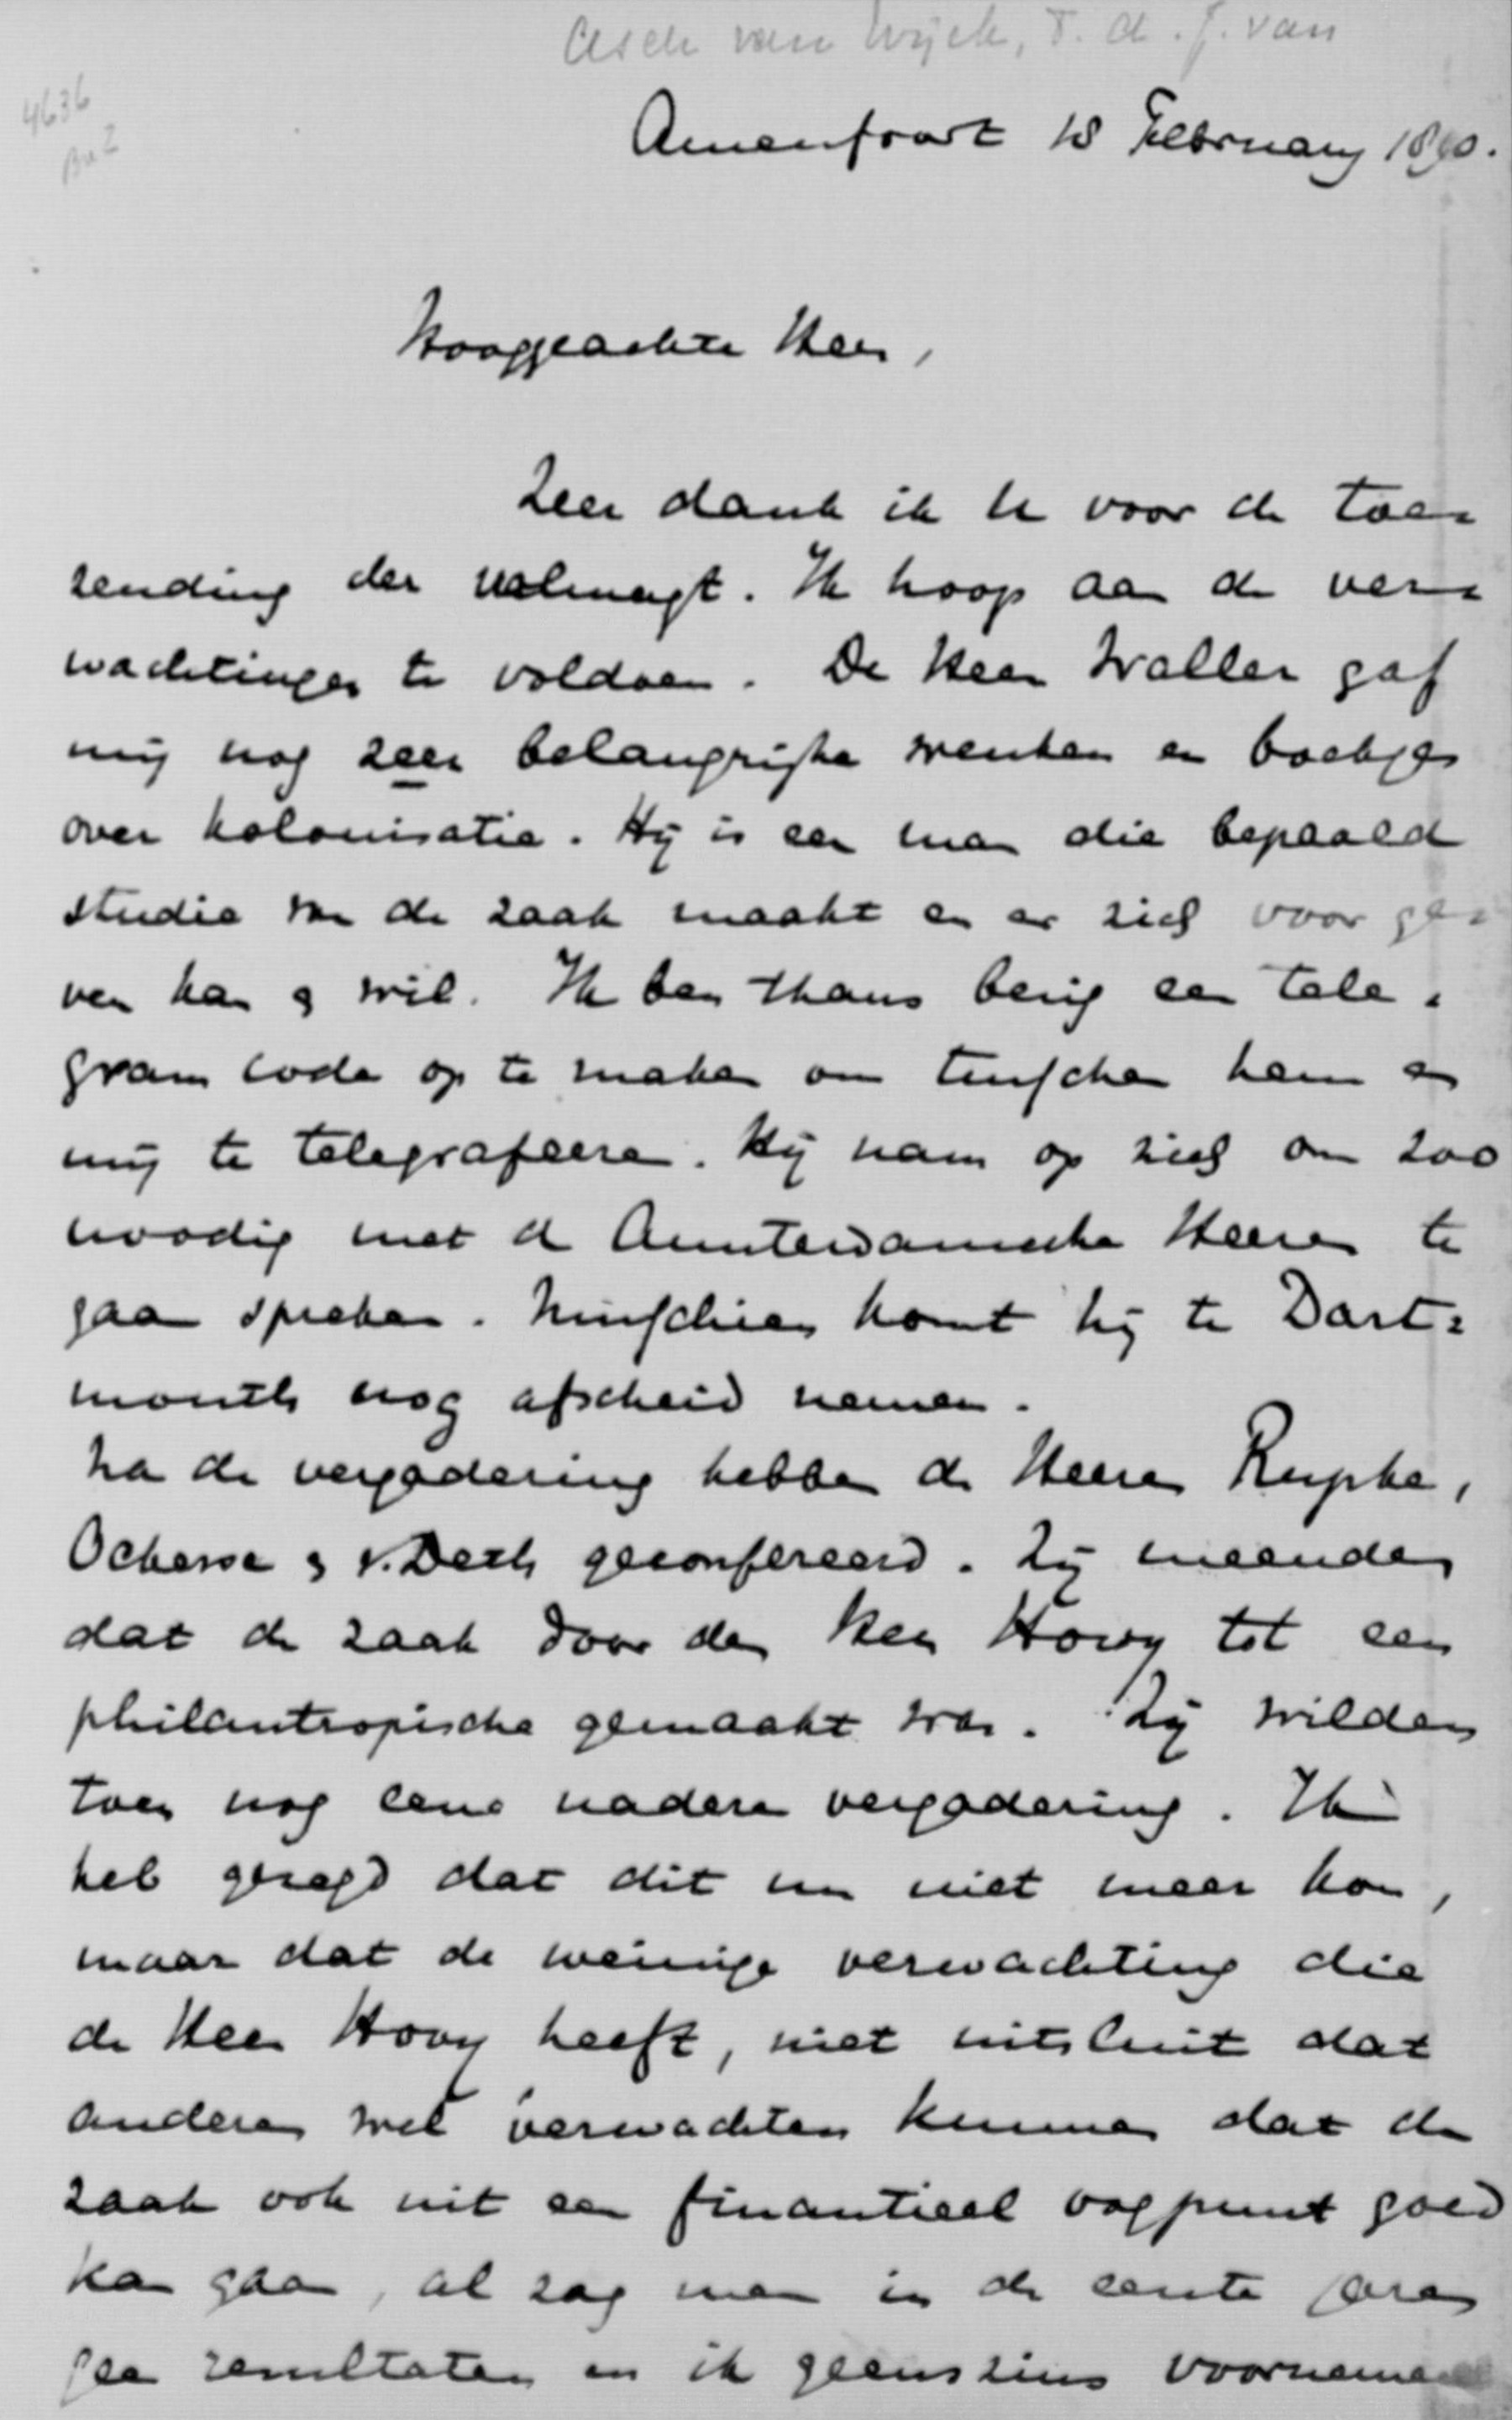 Asch van Wijck, T. A. J. van
4636
Bu 2
Amersfoort 18 February 1890.
Hooggeachte Heer,
Zeer dank ik U voor de toe=
zending der volmagt. Ik hoop aan de ver=
wachtingen te voldoen. De Heer Waller gaf
mij nog zeer belangrijke wenken en boekjes
over kolonisatie. Hij is een man die bepaald
studie van de zaak maakt en er zich voor ge=
ven kan en wil. Ik ben thans bezig een tele=
gram code op te maken om tusschen hem en
mij te telegrafeeren. Hij nam op zich om zoo
noodig met de Amsterdamsche Heeren te
gaan spreken. Misschien komt hij te Dart=
mouth nog afscheid nemen.
Na de vergadering hebben de Heeren
Ochense & v. Deth geconfereerd. Zij meenden
dat de zaak door den Heer Hovy tot een
philantropische gemaakt was. Zij wilden
toen nog eene nadere vergadering. Ik
heb gezegd dat dit nu niet meer kon,
maar dat de weinige verwachting die
de Heer Hovy heeft, niet uitsluit dat
anderen wel verwachten kunnen dat de
zaak ook uit een finantieel oogpunt goed
kan gaan, al zag men in de eerste jaren
gee resultaten en ik geenszins voornemens